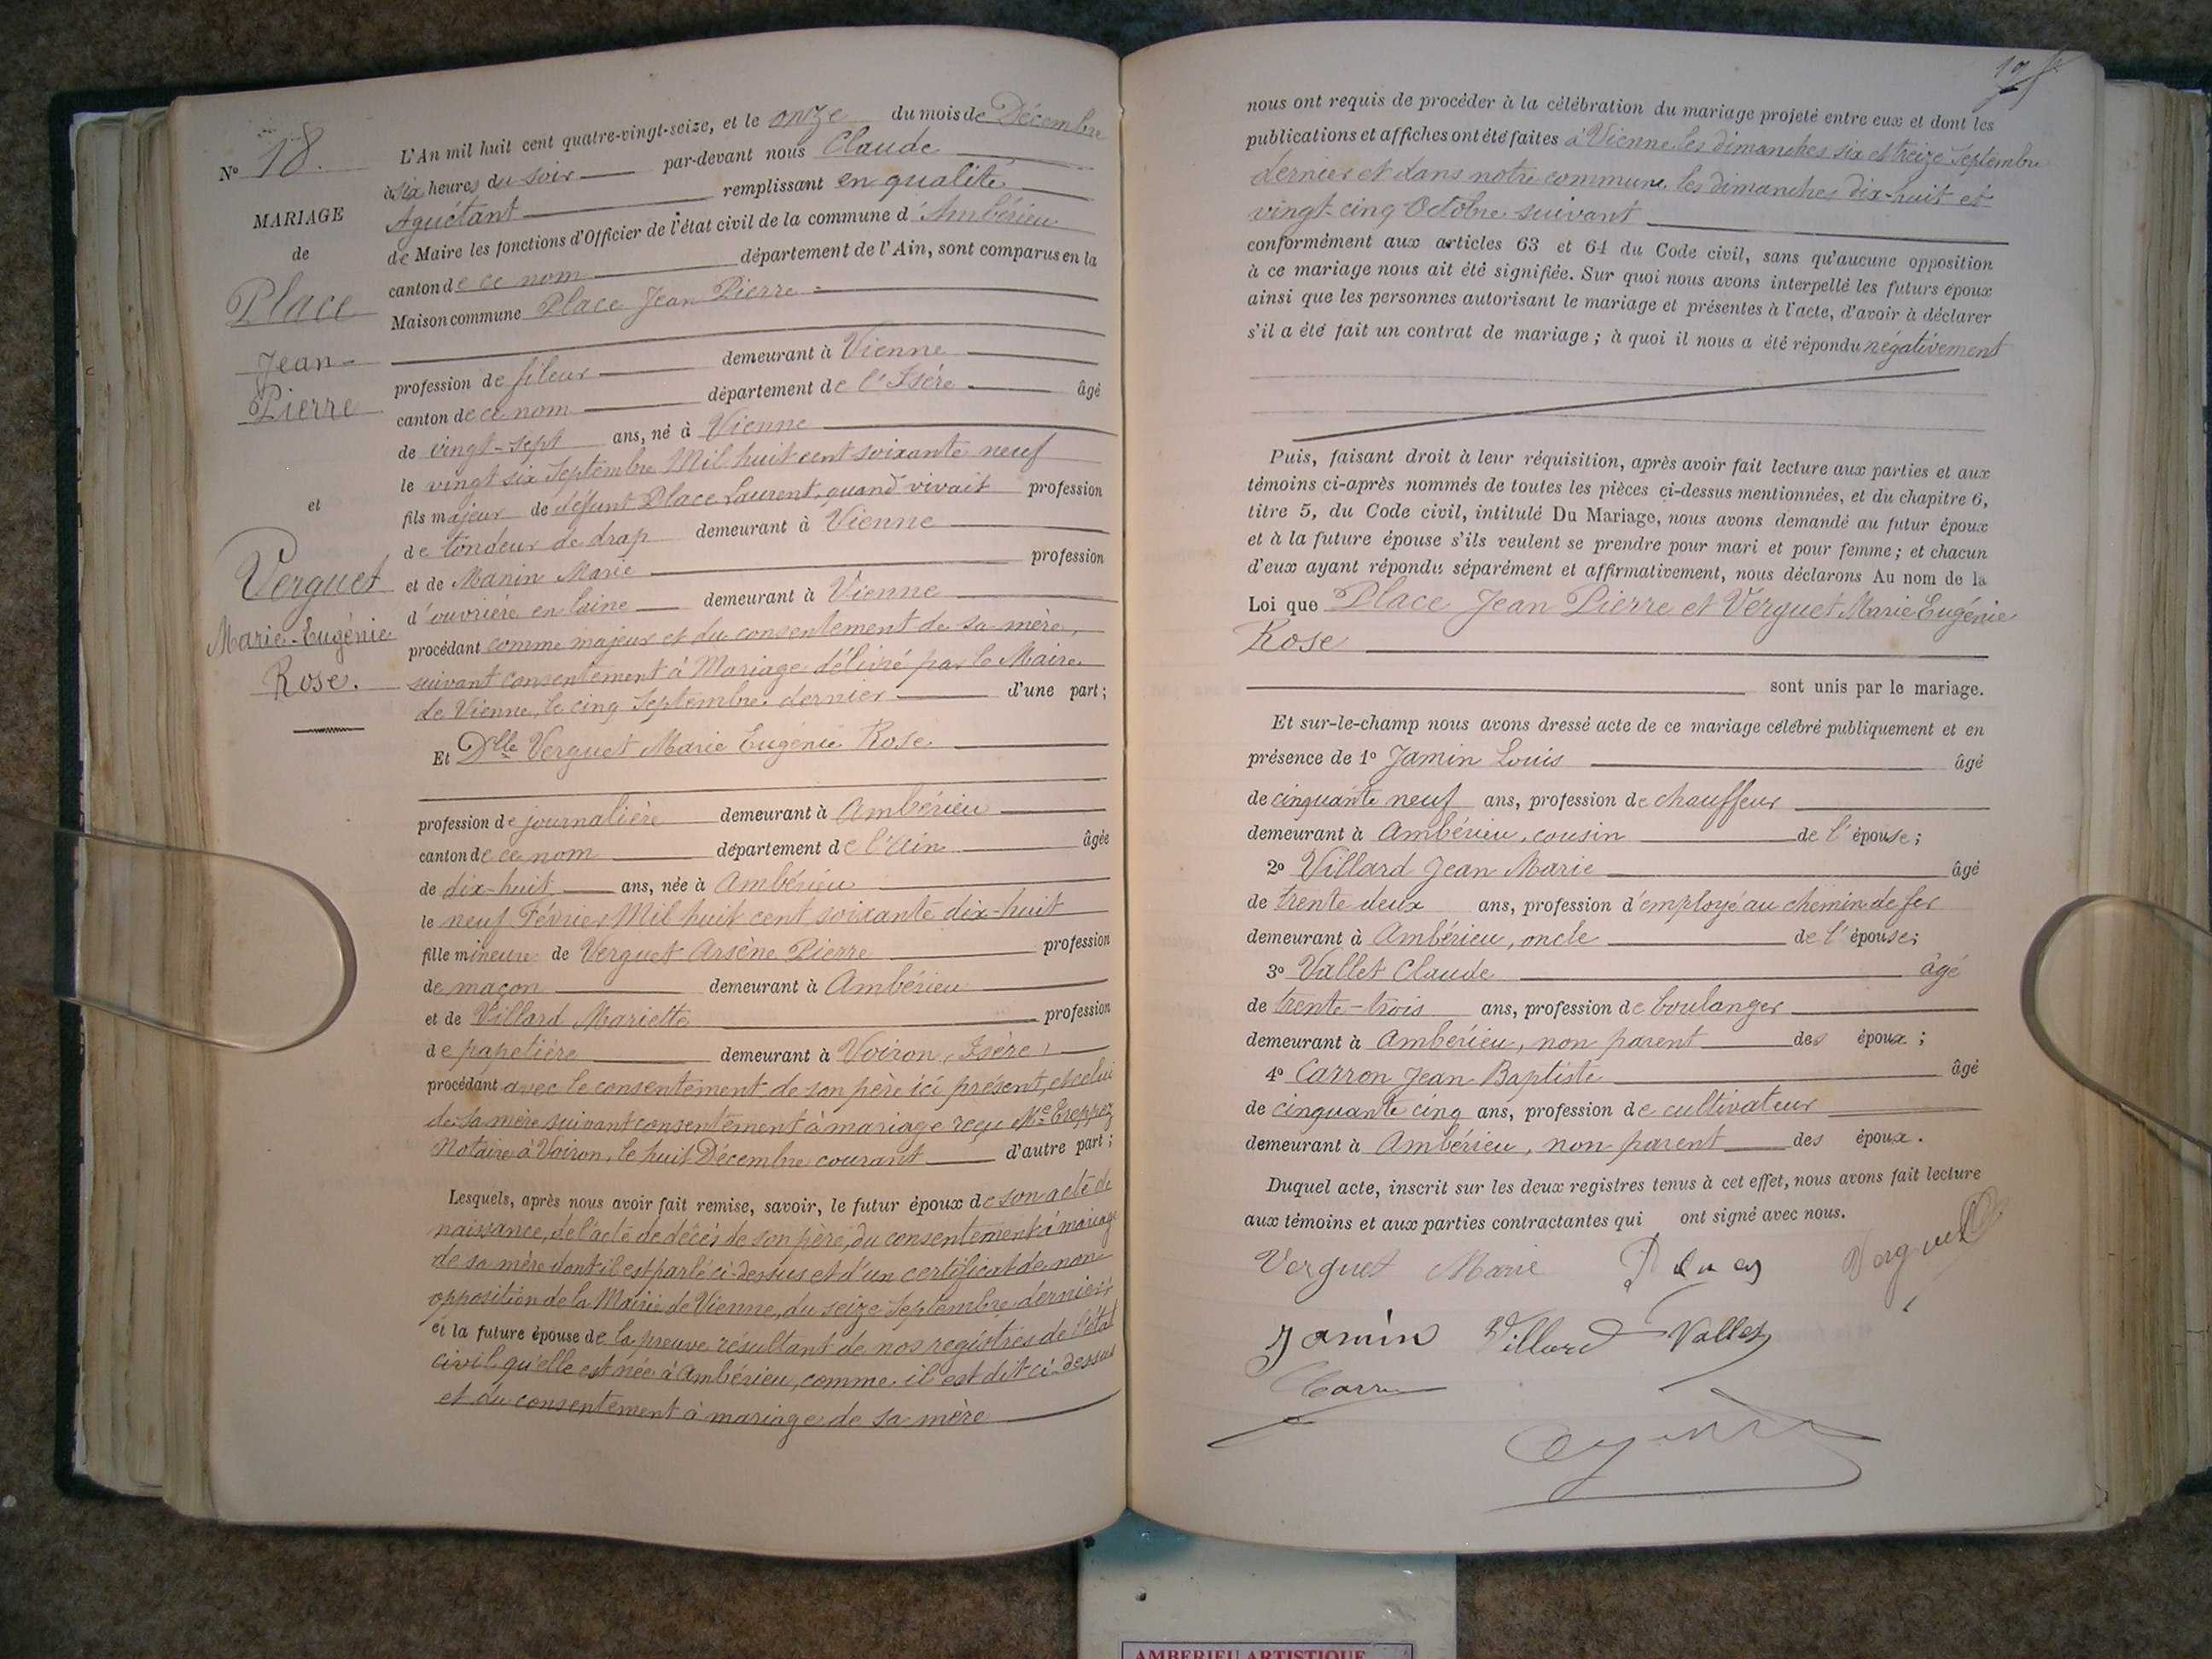 N° 18.
MARIAGE
de
Place
Jean-
Pierre
et
Verguet
Marie-Eugénie
Rose.
L'An mil huit cent quatre-vingt-seize, et le onze du mois de Décembre
à six heures du soir par-devant nous Claude
Aguétant remplissant en qualité
de Maire les fonctions d'Officier de l'état civil de la commune d'Ambérieu
canton de ce nom département de l'Ain, sont comparus en la
Maison commune Place Jean Pierre
profession de fileur demeurant à Vienne
canton de ce nom département de l'Isère âgé
de vingt-sept ans, né à Vienne
le vingt six Septembre Mil huit cent soixante neuf
fils majeur de défunt Place Laurent, quand vivait profession
de tondeur de drap demeurant à Vienne
et de Manin Marie profession
d'ouvrière en laine demeurant à Vienne
procédant comme majeur et du consentement de sa mère,
suivant consentement à Mariage délivré par le Maire
de Vienne, le cinq Septembre dernier d'une part;
Et Dlle Verguet Marie Eugénie Rose
profession de journalière demeurant à Ambérieu
canton de ce nom département de l'Ain âgée
de dix-huit ans, née à Ambérieu
le neuf Février Mil huit cent soixante dix-huit
fille mineure de Verguet Arsène Pierre profession
de maçon demeurant à Ambérieu
et de Villard Mariette profession
de papetière demeurant à Voiron (Isère)
procédant avec le consentement de son père ici présent, et celui
de sa mère suivant consentement à mariage reçu Me
Notaire à Voiron, le huit Décembre courant d'autre part;
Lesquels, après nous avoir fait remise, savoir, le futur époux de son acte de
naissance, de l'acte de décès de son père, du consentement à mariage
de sa mère dont il est parlé ci-dessus et d'un certificat de non
opposition de la Mairie de Vienne, du seize Septembre dernier;
et la future épouse de la preuve résultant de nos registres de l'état
civil qu'elle est née à Ambérieu, comme il est dit ci-dessus
et du consentement à mariage de sa mère
19
nous ont requis de procéder à la célébration du mariage projeté entre eux et dont les
publications et affiches ont été faites à Vienne les dimanches six et treize Septembre
dernier et dans notre commune les dimanches dix-huit et
vingt-cinq Octobre suivant
conformément aux articles 63 et 64 du Code civil, sans qu'aucune opposition
à ce mariage nous ait été signifiée. Sur quoi nous avons interpellé les futurs époux
ainsi que les personnes autorisant le mariage et présentes à l'acte, d'avoir à déclarer
s'il a été fait un contrat de mariage; à quoi il nous a été répondu négativement
Puis, faisant droit à leur réquisition, après avoir fait lecture aux parties et aux
témoins ci-après nommés de toutes les pièces ci-dessus mentionnées, et du chapitre 6,
titre 5, du Code civil, intitulé Du Mariage, nous avons demandé au futur époux
et à la future épouse s'ils veulent se prendre pour mari et pour femme; et chacun
d'eux ayant répondu séparément et affirmativement, nous déclarons Au nom de la
Loi que Place Jean Pierre et Verguet Marie Eugénie
Rose
sont unis par le mariage.
Et sur-le-champ nous avons dressé acte de ce mariage célébré publiquement et en
présence de 1° Jamin Louis âgé
de cinquante neuf ans, profession de chauffeur
demeurant à Ambérieu, cousin de l'épouse;
2° Villard Jean Marie âgé
de trente deux ans, profession d'employé au chemin de fer
demeurant à Ambérieu, oncle de l'épouse;
3° Vallet Claude âgé
de trente-trois ans, profession de boulanger
demeurant à Ambérieu, non parent des époux;
4° Carron Jean Baptiste âgé
de cinquante cinq ans, profession de cultivateur
demeurant à Ambérieu, non parent des époux.
Duquel acte, inscrit sur les deux registres tenus à cet effet, nous avons fait lecture
aux témoins et aux parties contractantes qui ont signé avec nous.
Verguet Marie
Jamin Villard Vallet
AMBERIEU ARTISTIQUE